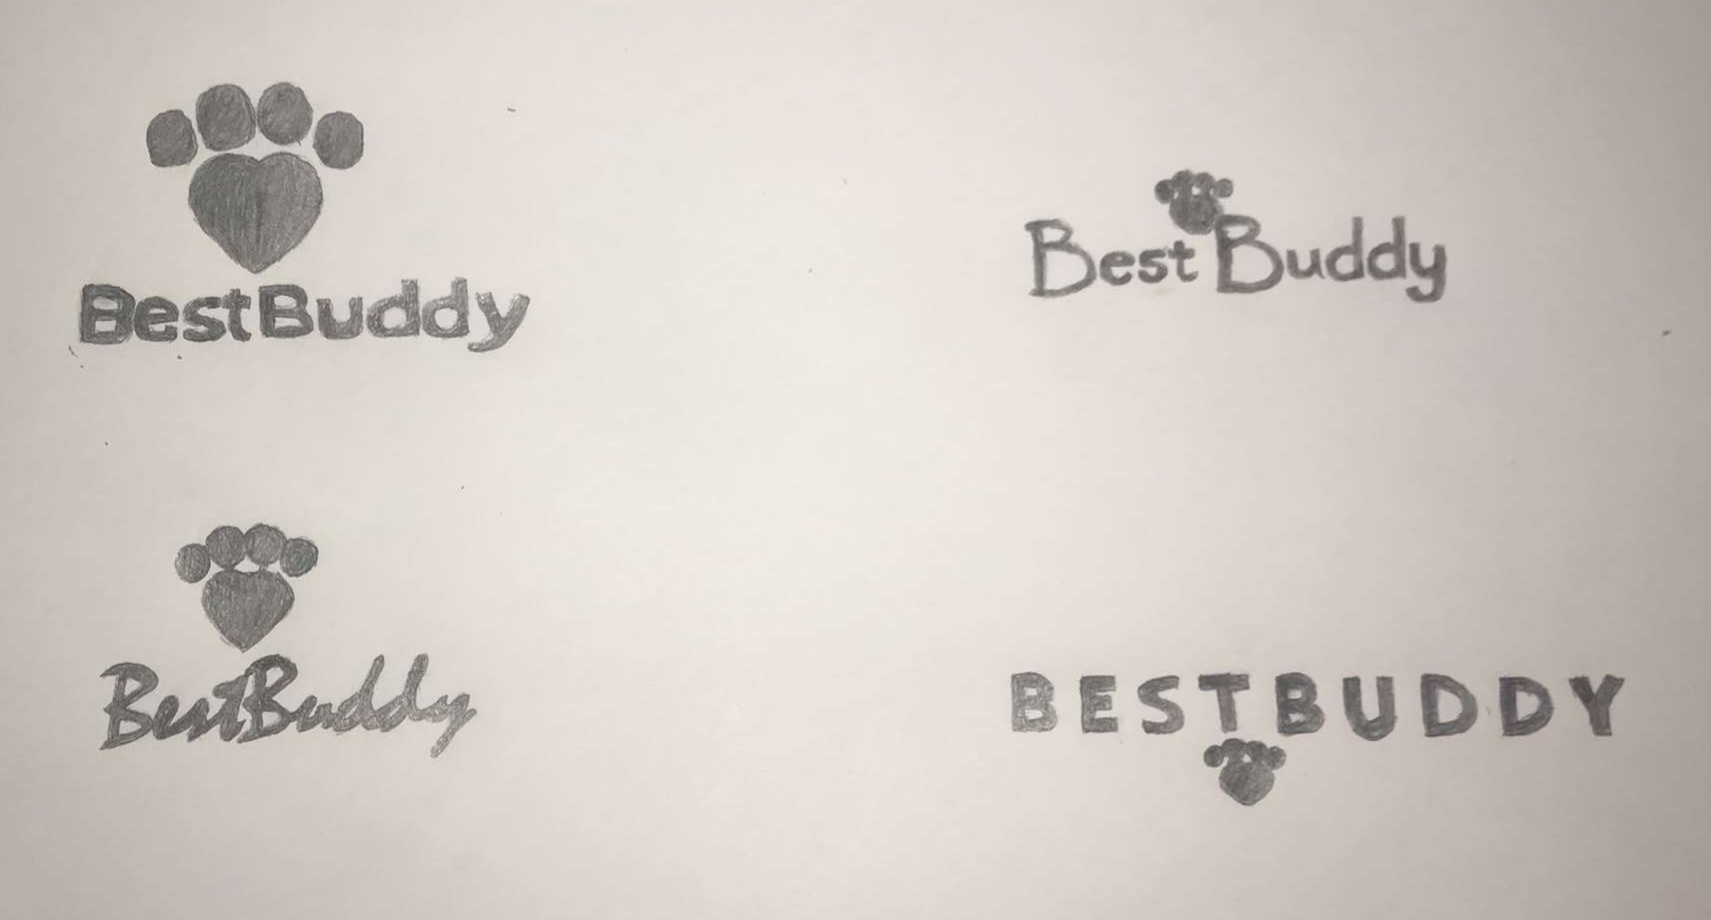 BestBuddy
Best Buddy
BestBuddy
BESTBUDDY